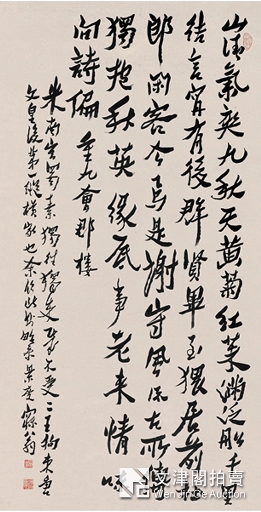 山清氣爽九秋天黃菊紅茱滿泛船千里
結言寧有後群賢畢至猥居前杜
郎閑客今焉是謝守風流古所傳
獨把秋英緣底事老來情味
向詩偏 重九會郡樓
米南宮蜀素
文皇後第一縱橫家也余臨此
文津閣拍賣
Wen Jin Ge Auction